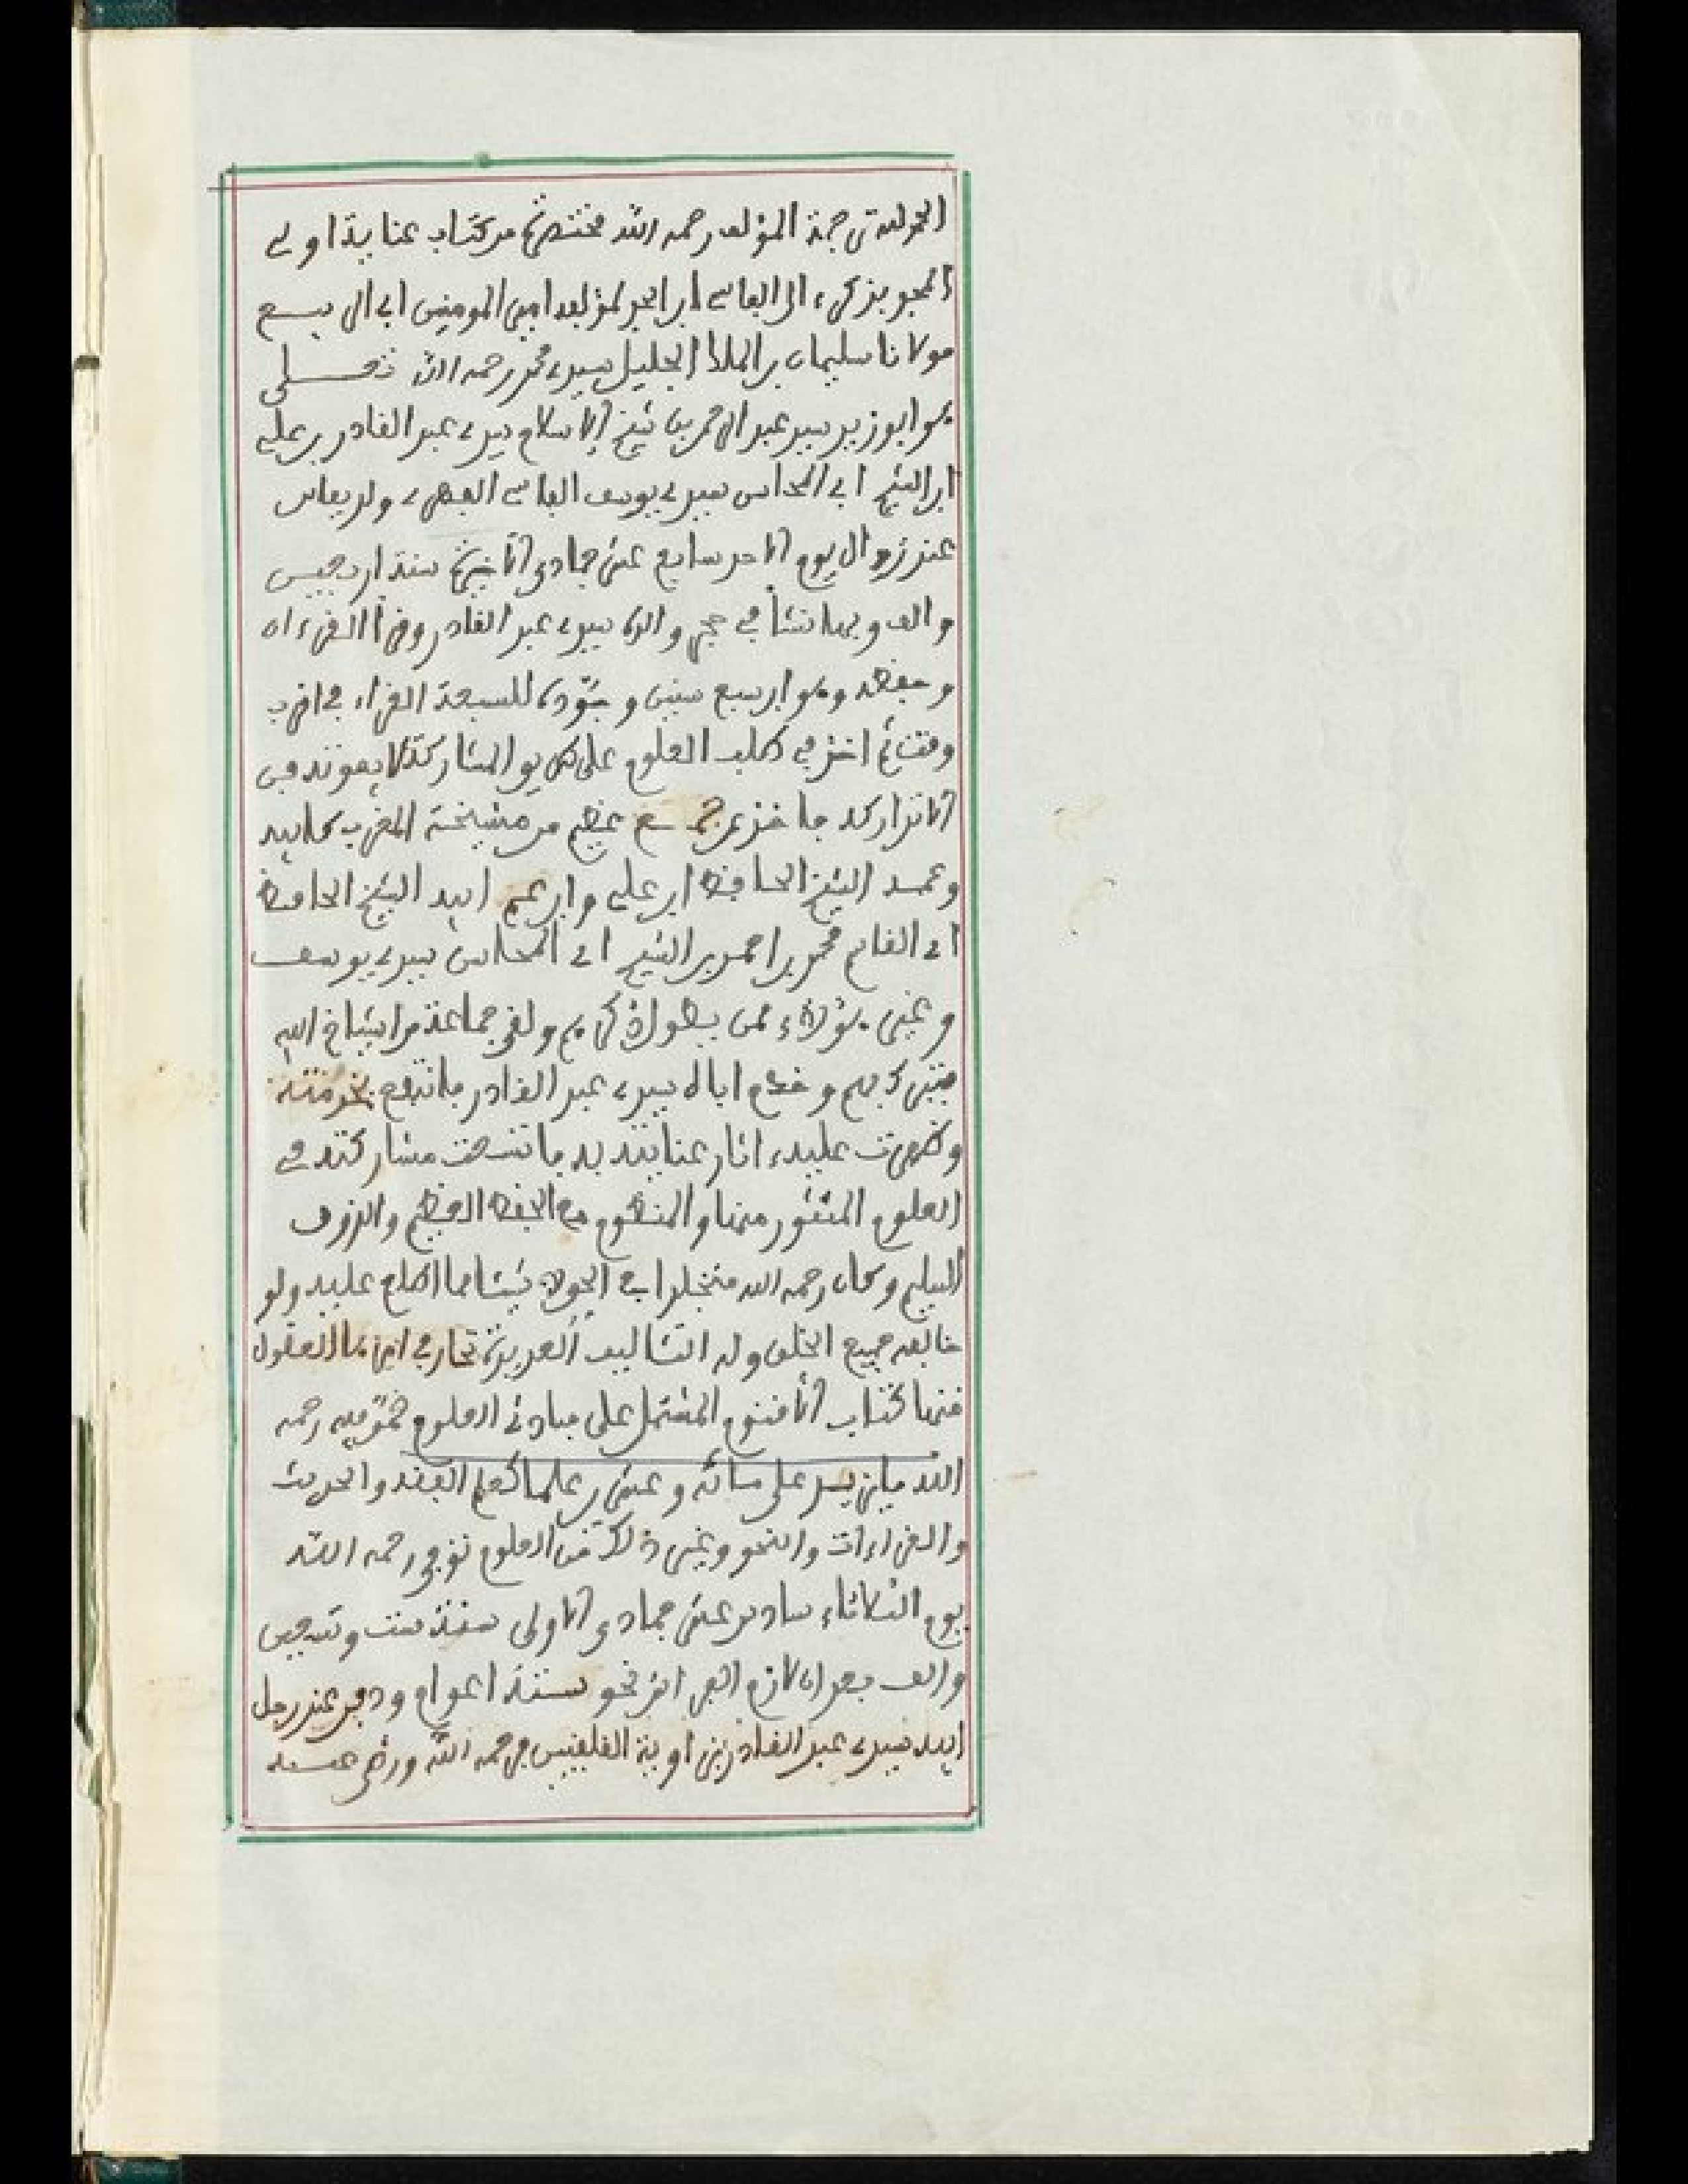 الحمد لله ترجمة المؤلف رحمه الله مختصرة من كتاب عناية اولي
المجد بذكر ءال الفاسي ابن الجد لمؤلفه امير المومنين ابي الربيع
مولانا سليمان بن الملك الجليل سيدي محمد رحمه الله
هو ابو زيد سيد عبد الرحمن بن شيخ الاسلام سيدي عبد القادر بن علي
ابن الشيخ ابي المحاسن سيدي يوسف الفاسي الفهري ولد بفاس
عند زوال يوم الاحد سابع عشر جمادى الاخيرة سنة اربعين
والف وبها نشأ في حجر والده سيدي عبد القادر وقرأ القرءان
وحفظه وهو ابن سبع سنين وجوده للسبعة القراء في اقرب
وقت ثم اخذ في طلب العلوم على طريق المشاركة لا يفوته فن
الا تداركه فاخذ عن جمع عظيم من مشيخة المغرب كابيه
وعمه الشيخ الحافظ ابن علي وابن عم ابيه الشيخ الحافظ
ابي القاسم محمد بن احمد بن الشيخ ابي المحاسن سيدي يوسف
وغير هؤلاء ممن يطول ذكرهم ولقي جماعة من اشياخ الله
وتبرك بهم وخدم اباه سيدي عبد القادر فانتفع بخدمته
وظهرت عليه ءاثار عنايته به فاتسعت مشاركته في
العلوم المنثور منها والمنظوم مع الحفظ العظيم والذوق
السليم وكان رحمه الله متجلدا في الحق لا يثبت الا ما اطلع عليه ولو
خالفه جميع الخلق وله التئاليف العديدة تحار في امرها العقول
فمنها كتاب الاقنوم المشتمل على مبادئ العلوم ضمن فيه رحمه
الله ما يزيد على مائة وعشرين علما كعلم الفقه والحديث
والقراءات والنحو وغير ذلك من العلوم توفي رحمه الله
يوم الثلاثاء سادس عشر جمادى الاولى سنة ست وتسعين
والف بعد ان لازم الفراش نحو ستة اعوام ودفن عند رجل
ابيه سيدي عبد القادر بزاوية القلقليين رحمه الله ورضي عنه